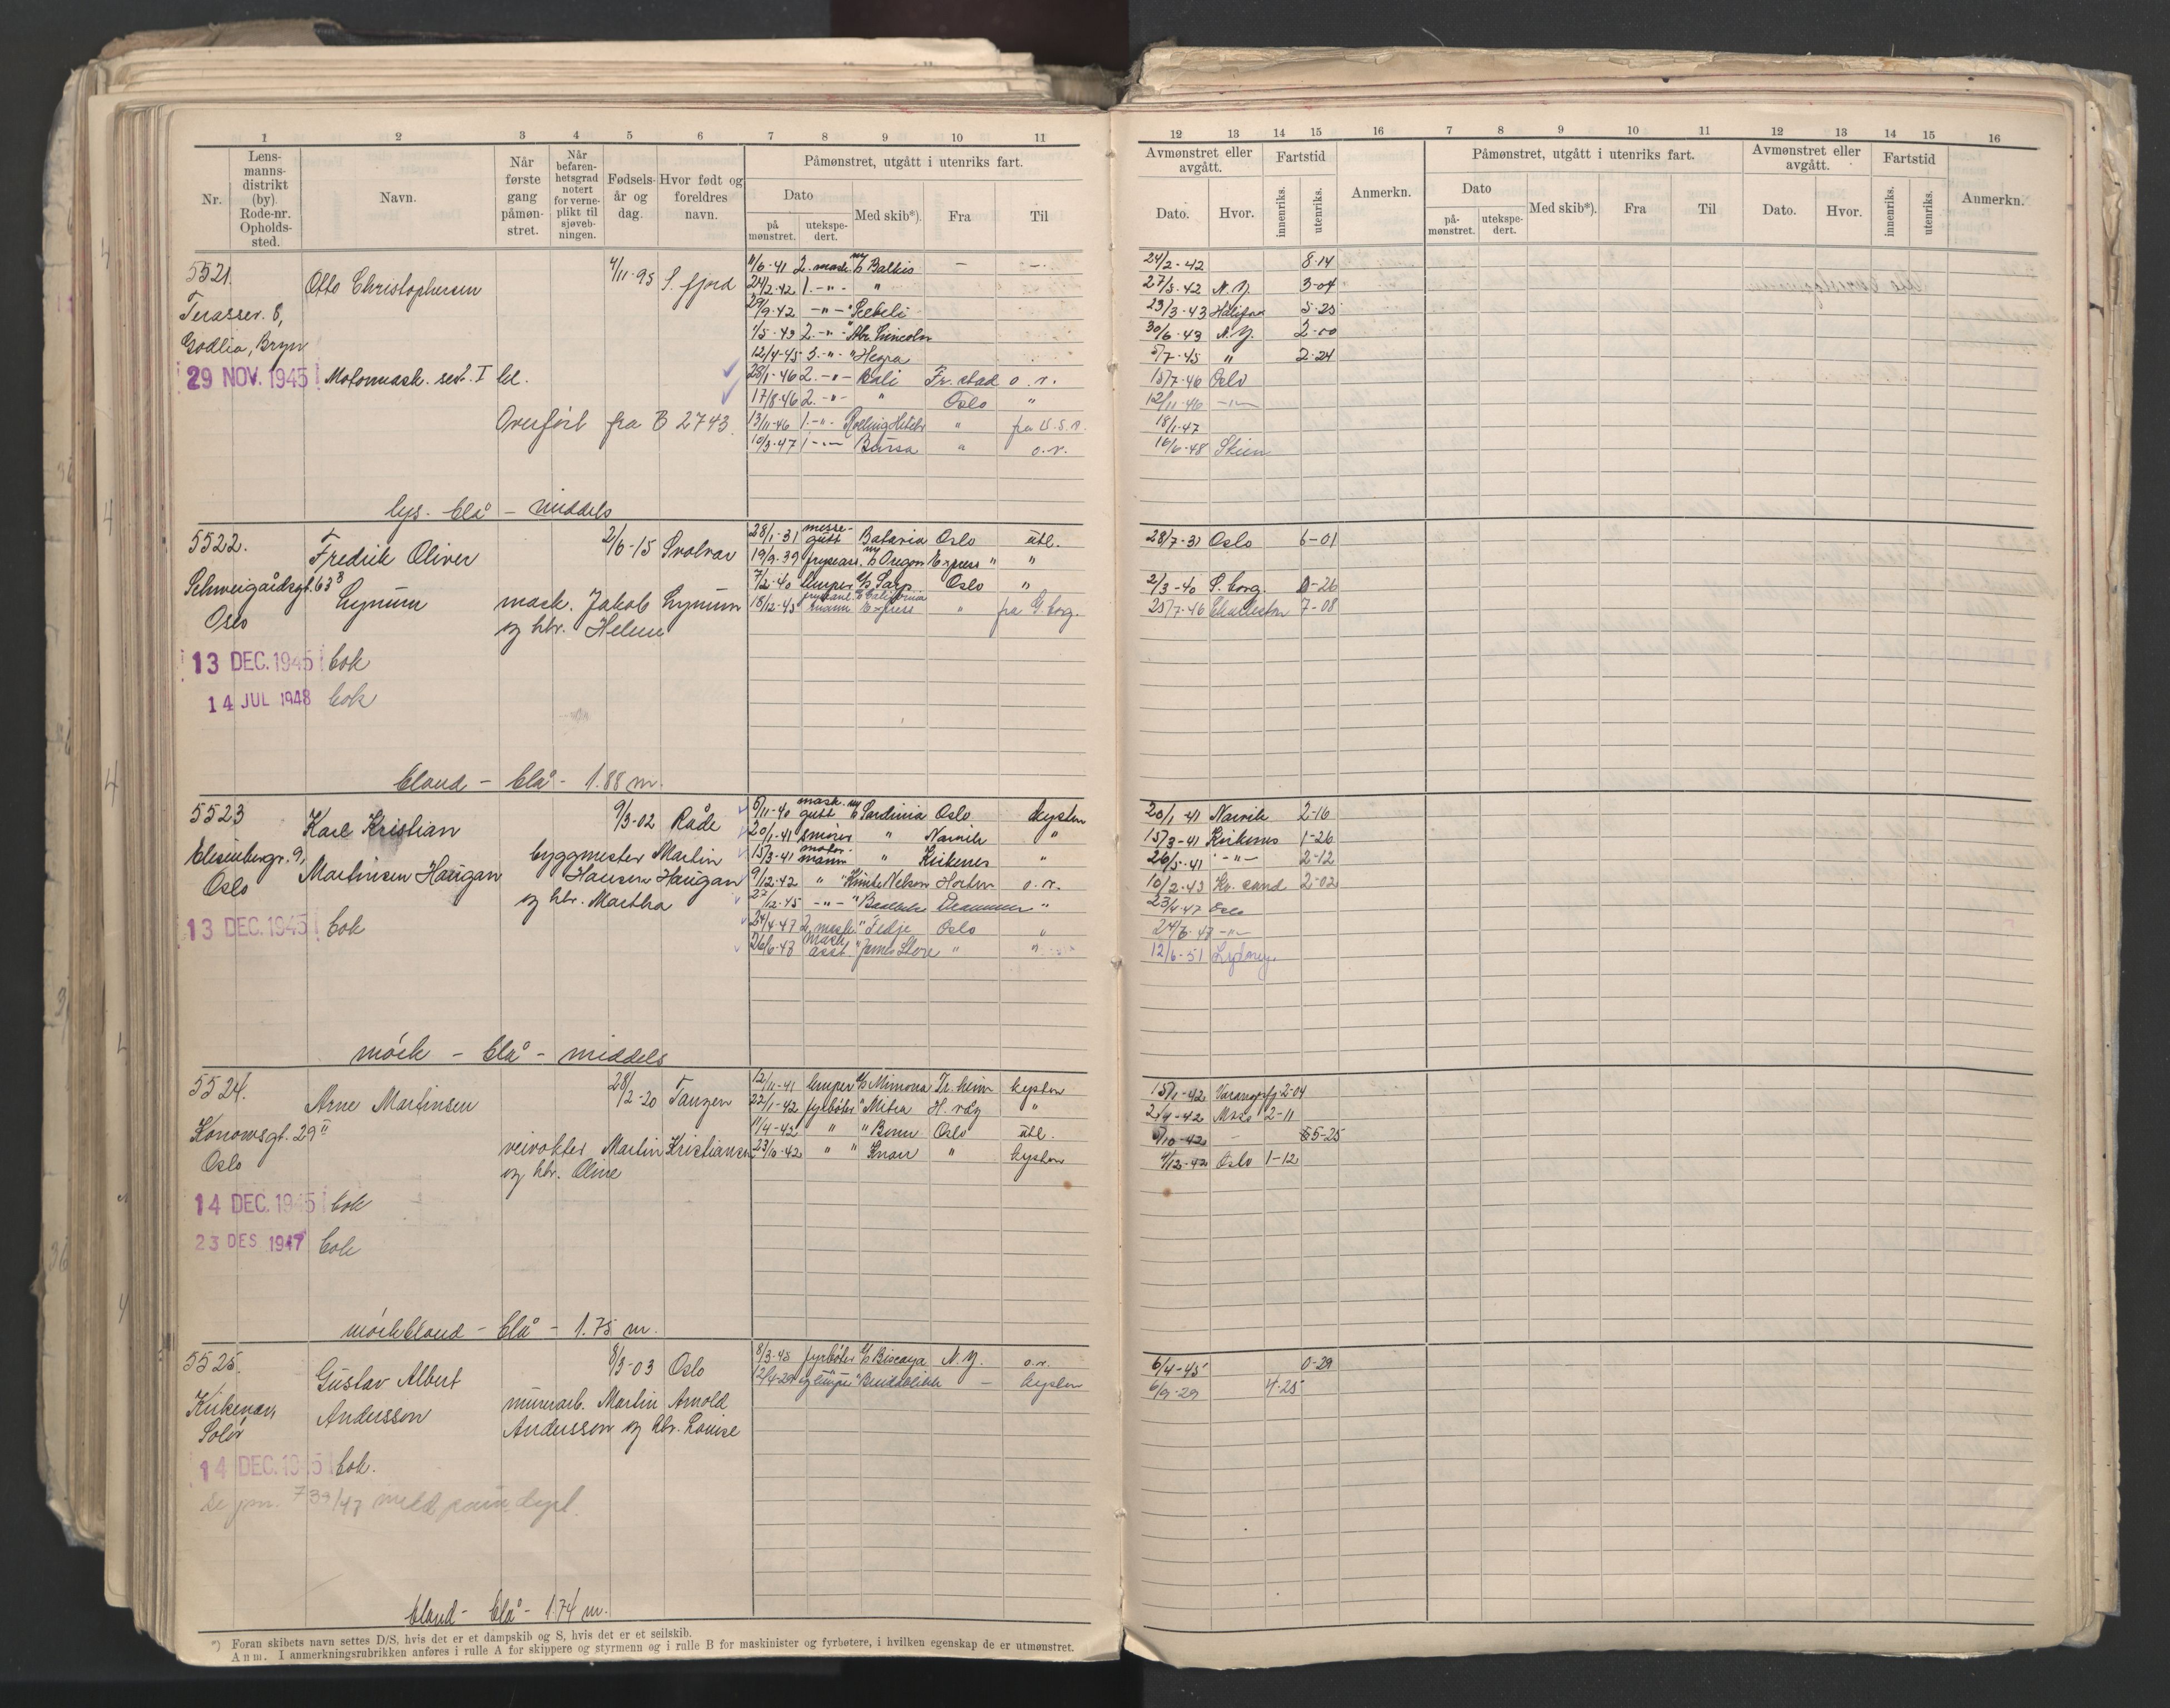 1 2 3 4 5 6 7 8 9 10 11
Nr. Lens-manns-distrikt (by) Rode-nr. Opholds-sted. Navn. Når første gang påmøn-stret. Når befaren-hetsgrad notert for verne-plikt til sjøveb-ningen. Fødsels-år og dag. Hvor født og foreldres navn. Påmønstret, utgått i utenriks fart.
Dato Med skib*). Fra Til
på mønstret. utekspe-dert.
5521. Otto Christophersen 4/11-95 S. fjord 11/6-41 2. mask m/s Balkis — —
Terassev. 8, 24/2-42 1. -"- "
29/9-42 -"- "
Godlia, Bryn 1/5-43 2. -"- " Abr. Lincoln
12/4-45 3. -"- "
29 NOV. 1945 Motormask. sert. I kl. 28/1-46 2. -"- Bali Fr. stad o. r.
17/8-46 2. -"- " Oslo "
Overført fra B 2743. 13/11-46 1. -"- " fra U.S.A.
10/3-47 1 -"- " o. r.
lys - blå - middels
5522. Fredrik Oliver 2/6-15 Svolvær 28/1-31 messe-gutt Batavia Oslo utl.
19/9-39 fryseass. m/s Oregon Express " "
Schweigårdsgt. 63 B Lynum mask. Jakob Lynum 7/2-40 lemper d/s Sarp Oslo "
Oslo og htr. Helene 18/12-45 m/s California Express " fra G.borg.
13 DEC. 1945 bok
14 JUL 1948 bok
blond - blå - 1.88 m.
5523 Karl Kristian 9/3-02 Råde 5/11-40 mask. gutt m/s Sardinia Oslo kysten
20/1-41 smører " Narvik "
Elisenbergv. 9, Martinsen Haugan byggmester Martin 15/3-41 motor-mann " Kirkenes "
Oslo Hansen Haugan 9/12-42 " " Knute Nelson Horten o. r.
og htr. Martha 27/12-45 -"- " Drammen "
13 DEC. 1945 bok 24/4-47 2. mask. " Fedje Oslo "
26/6-47 mask. asst. " James Stove " "
mørk - blå - middels
5524. Arne Martinsen 28/2-20 12/11-41 lemper d/s Mimona Tr.heim kysten
22/1-42 fyrbøter " Mitra "
Konowsgt. 29 II 11/4-42 " " Oslo utl.
Oslo veivokter Martin Kristiansen 23/10-42 " " Knarr " kysten
og htr. Oline
14 DEC. 1945 bok
23 DES 1947 bok
mørkblond - blå - 1.75 m.
5525. Gustav Albert 8/3-03 Oslo 8/3-45 fyrbøter d/s Biscaya N.Y. o.r.
Kirkenær, Andersson murarb. Martin Arnold 12/4-29 — kysten
Solør Andersson og htr. Louise
14 DEC. 1945 bok.
blond - blå - 1.74 m.
*) Foran skibets navn settes D/S, hvis det er et dampskib og S, hvis det er et seilskib.
Anm. I anmerkningsrubrikken anføres i rulle A for skippere og styrmenn og i rulle B for maskinister og fyrbøtere, i hvilken egenskap de er utmønstret.
12 13 14 15 16 7 8 9 10 11 12 13 14 15 16
Avmønstret eller avgått. Fartstid Anmerkn. Påmønstret, utgått i utenriks fart. Avmønstret eller avgått. Fartstid Anmerkn.
Dato. Hvor. innenriks. utenriks. Dato Med skib*). Fra Til Dato. Hvor. innenriks. utenriks.
på-mønstret. utekspe-dert.
24/2-42 8-14
27/5-42 N.Y. 3-04
23/3-43 Halifax 5-25
30/6-43 N.Y. 2-00
5/7-45 " 2-24
15/7-46 Oslo
12/11-46 -"-
18/1-47
16/6-48 Skien
28/7-31 Oslo 6-01
2/3-40 S. borg. 0-26
25/7-46 Charleston 7-08
20/1-41 Narvik 2-16
15/3-41 Kirkenes 1-26
26/5-41 -"- 2-12
10/2-43 Kr. sund 2-02
23/4-47 Oslo
24/6-47 -"-
12/6-51 Sydney
15/1-42 Varangerfj 2-04
2/4-42 Moss 2-11
5/10-42 - 5-25
4/12-42 Oslo 1-12
6/4-45 0-29
6/9-29 4-25